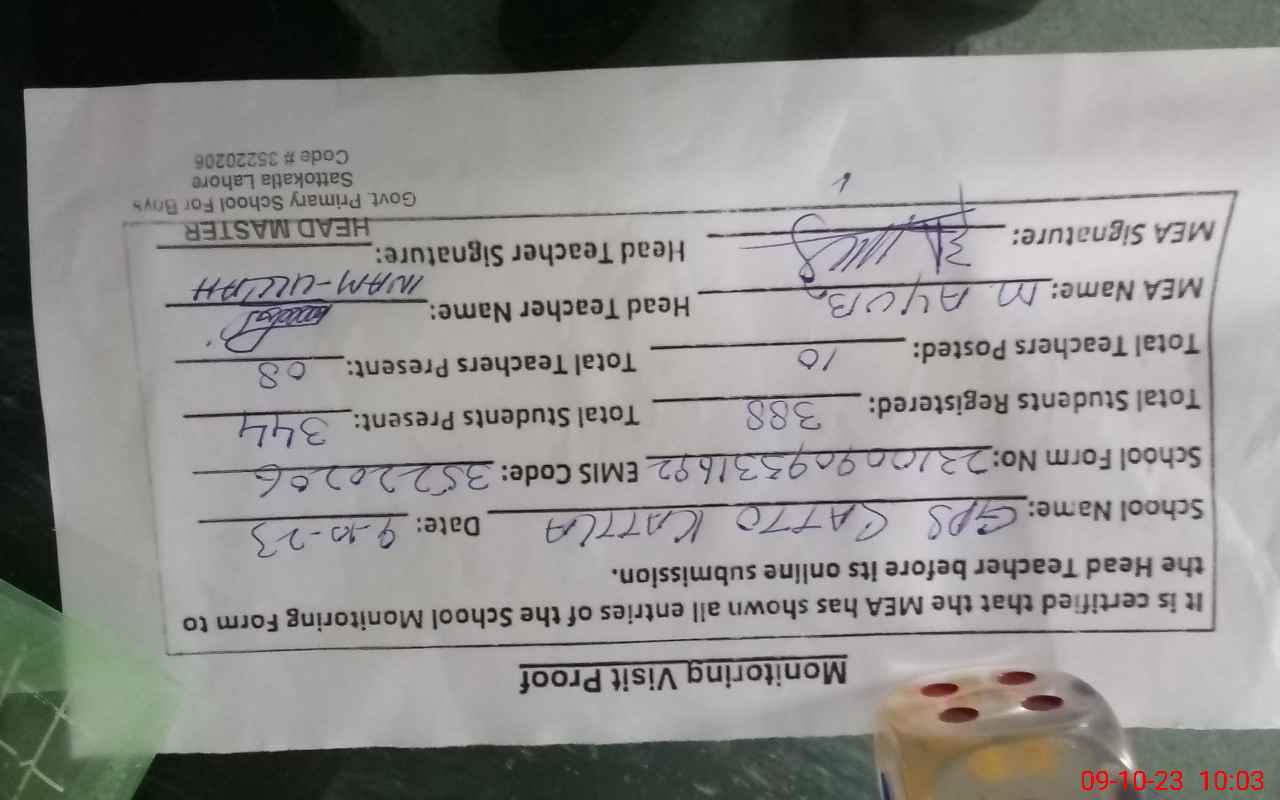 Monitoring Visit Proof
It is certified that the MEA has shown all entries of the School Monitoring Form to
the Head Teacher before its online submission.
School Name: GPS SATTO KATTLA Date: 9-10-23
School Form No: 231009095331692 EMIS Code: 35220206
Total Students Registered: 388 Total Students Present: 344
Total Teachers Posted: 10 Total Teachers Present: 08
MEA Name: M AYUB Head Teacher Name: INAM-ULLAH
MEA Signature: Head Teacher Signature:
HEAD MASTER
Govt. Primary School For Boys
Sattokatla Lahore
Code # 35220206
09-10-23 10:03